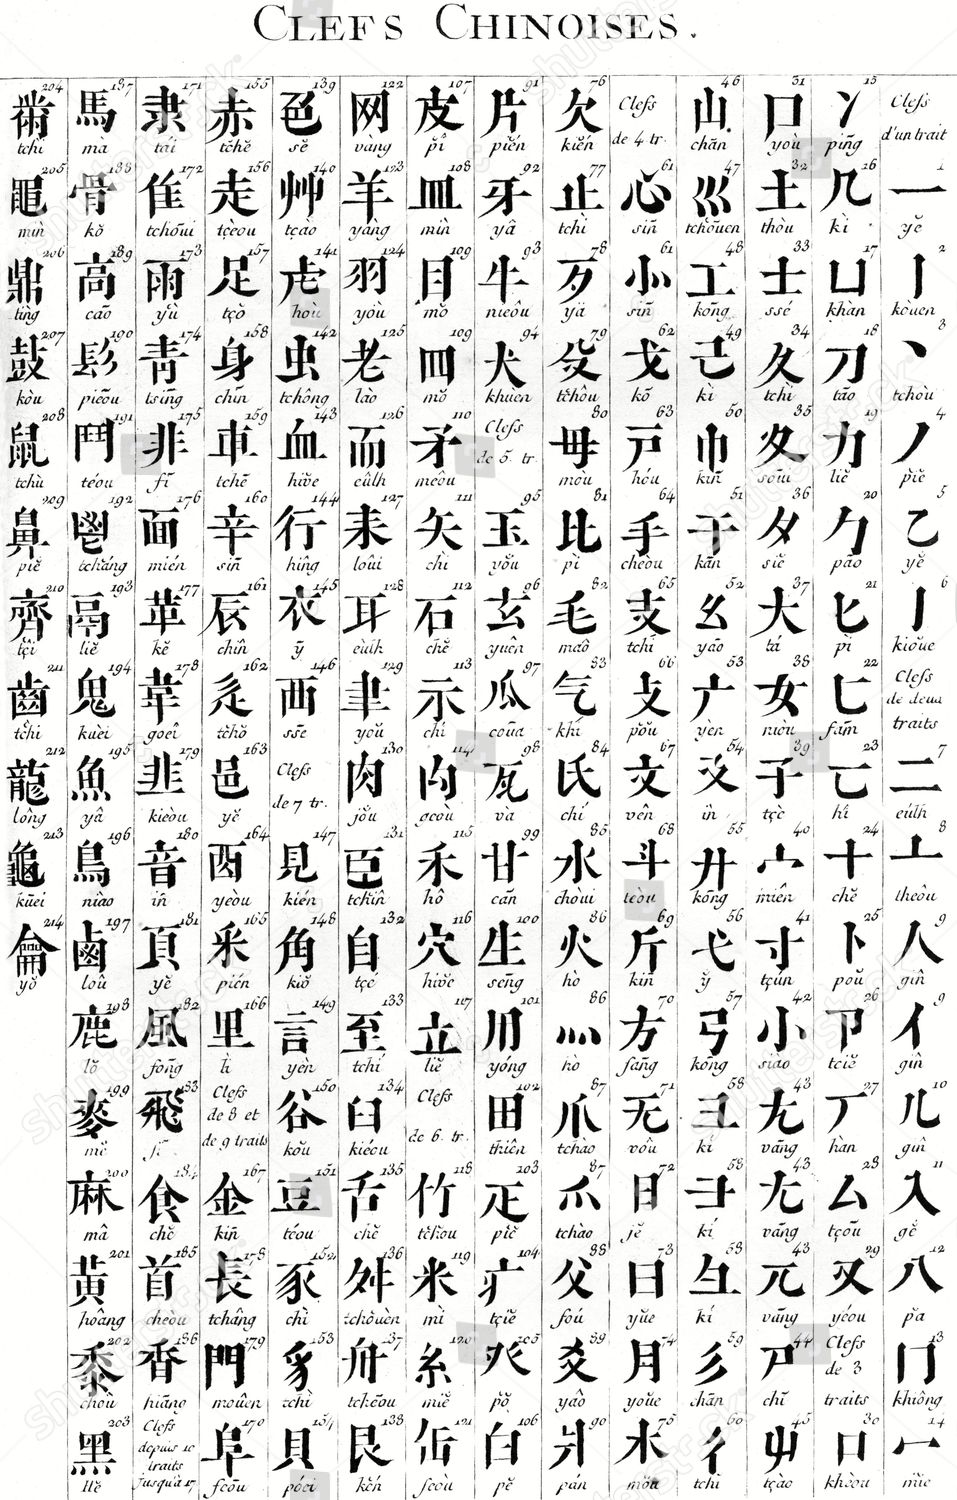 CLEFS CHINOISES.
Clefs
d'un trait
1 一 yĕ
2 丨 kòuen
3 丶 tchòu
4 丿 piĕ
5 乙 yĕ
6 亅 kioŭe
Clefs
de deux
traits
7 二 eúlh
8 亠 theòu
9 人 gîn
9 亻 gîn
10 儿 gîn
11 入 gĕ
12 八 pă
13 冂 khiōng
14 冖 miĕ
15 冫 pīng
16 几 kì
17 凵 khàn
18 刀 tāo
19 力 liĕ
20 勹 pāo
21 匕 pì
22 匚 fām
23 匸 hî
24 十 chĕ
25 卜 poŭ
26 卩 tciĕ
27 厂 hàn
28 厶 tçōu
29 又 yéou
Clefs
de 3
traits
30 口 khèou
31 口 yoù
32 土 thòu
33 士 ssé
34 夂 tchì
35 夊 soūi
36 夕 siĕ
37 大 tá
38 女 niòu
39 子 tçè
40 宀 miên
41 寸 tçún
42 小 siào
43 尢 vāng
43 尤 vāng
43 兀 vāng
44 尸 chī
45 屮 tçào
46 山 chān
47 巛 tchōuen
48 工 kōng
49 己 kì
50 巾 kīn
51 干 kān
52 幺 yāo
53 广 yèn
54 廴 ìn
55 廾 kōng
56 弋 y̆
57 弓 kōng
58 彐 kí
58 彑 kí
59 彡 chān
60 彳 tchì
Clefs
de 4 tr.
61 心 sīn
61 㣺 sīn
62 戈 kō
63 戶 hóu
64 手 chèou
65 支 tchī
66 攴 pŏu
67 文 vên
68 斗 tèou
69 斤 kīn
70 方 fāng
71 无 vôu
72 日 jĕ
73 曰 yŭe
74 月 yoŭe
75 木 mŏu
76 欠 kién
77 止 tchì
78 歹 yă
79 殳 tchôu
80 毋 moù
81 比 pì
82 毛 maô
83 气 khí
84 氏 chí
85 水 chòui
86 火 hò
86 灬 hò
87 爪 tchào
87 爫 tchào
88 父 foú
89 爻 yâo
90 爿 pán
91 片 pién
92 牙 yâ
93 牛 nieôu
94 犬 khuen
Clefs
de 5. tr.
95 玉 yŏu
96 玄 yuên
97 瓜 coūa
98 瓦 và
99 甘 cān
100 生 sēng
101 用 yóng
102 田 thiên
103 疋 piĕ
104 疒 tçiĕ
105 癶 pŏ
106 白 pĕ
107 皮 pî
108 皿 mìn
109 目 mŏ
109 罒 mŏ
110 矛 meôu
111 矢 chì
112 石 chĕ
113 示 chí
114 禸 geòu
115 禾 hô
116 穴 hiŏe
117 立 liĕ
Clefs
de 6. tr.
118 竹 tchŏu
119 米 mì
120 糸 miĕ
121 缶 feòu
122 网 vàng
123 羊 yâng
124 羽 yòu
125 老 lào
126 而 eûlh
127 耒 loûi
128 耳 èulh
129 聿 yoŭ
130 肉 jŏu
131 臣 tchîn
132 自 tçé
133 至 tchí
134 臼 kiéou
135 舌 chĕ
136 舛 tchòuèn
137 舟 tchēou
138 艮 kén
139 色 sĕ
140 艸 tçào
141 虍 hoū
142 虫 tchông
143 血 hiŏe
144 行 hîng
145 衣 ȳ
146 西 ssē
Clefs
de 7 tr.
147 見 kién
148 角 kiŏ
149 言 yên
150 谷 kŏu
151 豆 téou
152 豕 chì
153 豸 tchì
154 貝 póei
155 赤 tchĕ
156 走 tçeou
157 足 tçŏ
158 身 chīn
159 車 tchē
160 辛 sīn
161 辰 chîn
162 辵 tchŏ
163 邑 yĕ
164 酉 yèou
165 釆 pién
166 里 lì
Clefs
de 8 et
de 9 traits
167 金 kīn
178 長 tchâng
179 門 mouên
170 阜 feōu
171 隶 tái
172 隹 tchoūi
173 雨 yù
174 青 tsīng
175 非 fī
176 面 mién
177 革 kĕ
178 韋 goeî
179 韭 kièou
180 音 īn
181 頁 yĕ
182 風 fōng
183 飛 fī
184 食 chĕ
185 首 cheòu
186 香 hiāng
Clefs
depuis 10
traits
jusqu'à 17
187 馬 mà
188 骨 kŏ
189 高 cāo
190 髟 piēou
191 鬥 téou
192 鬯 tcháng
193 鬲 liĕ
194 鬼 kuèi
195 魚 yû
196 鳥 niào
197 鹵 loû
198 鹿 lŏ
199 麥 mĕ
200 麻 mâ
201 黃 hoâng
202 黍 choù
203 黑 hĕ
204 黹 tchì
205 黽 mìn
206 鼎 tìng
207 鼓 kòu
208 鼠 tchù
209 鼻 piĕ
210 齊 tçî
211 齒 tchì
212 龍 lông
213 龜 kūei
214 龠 yŏ